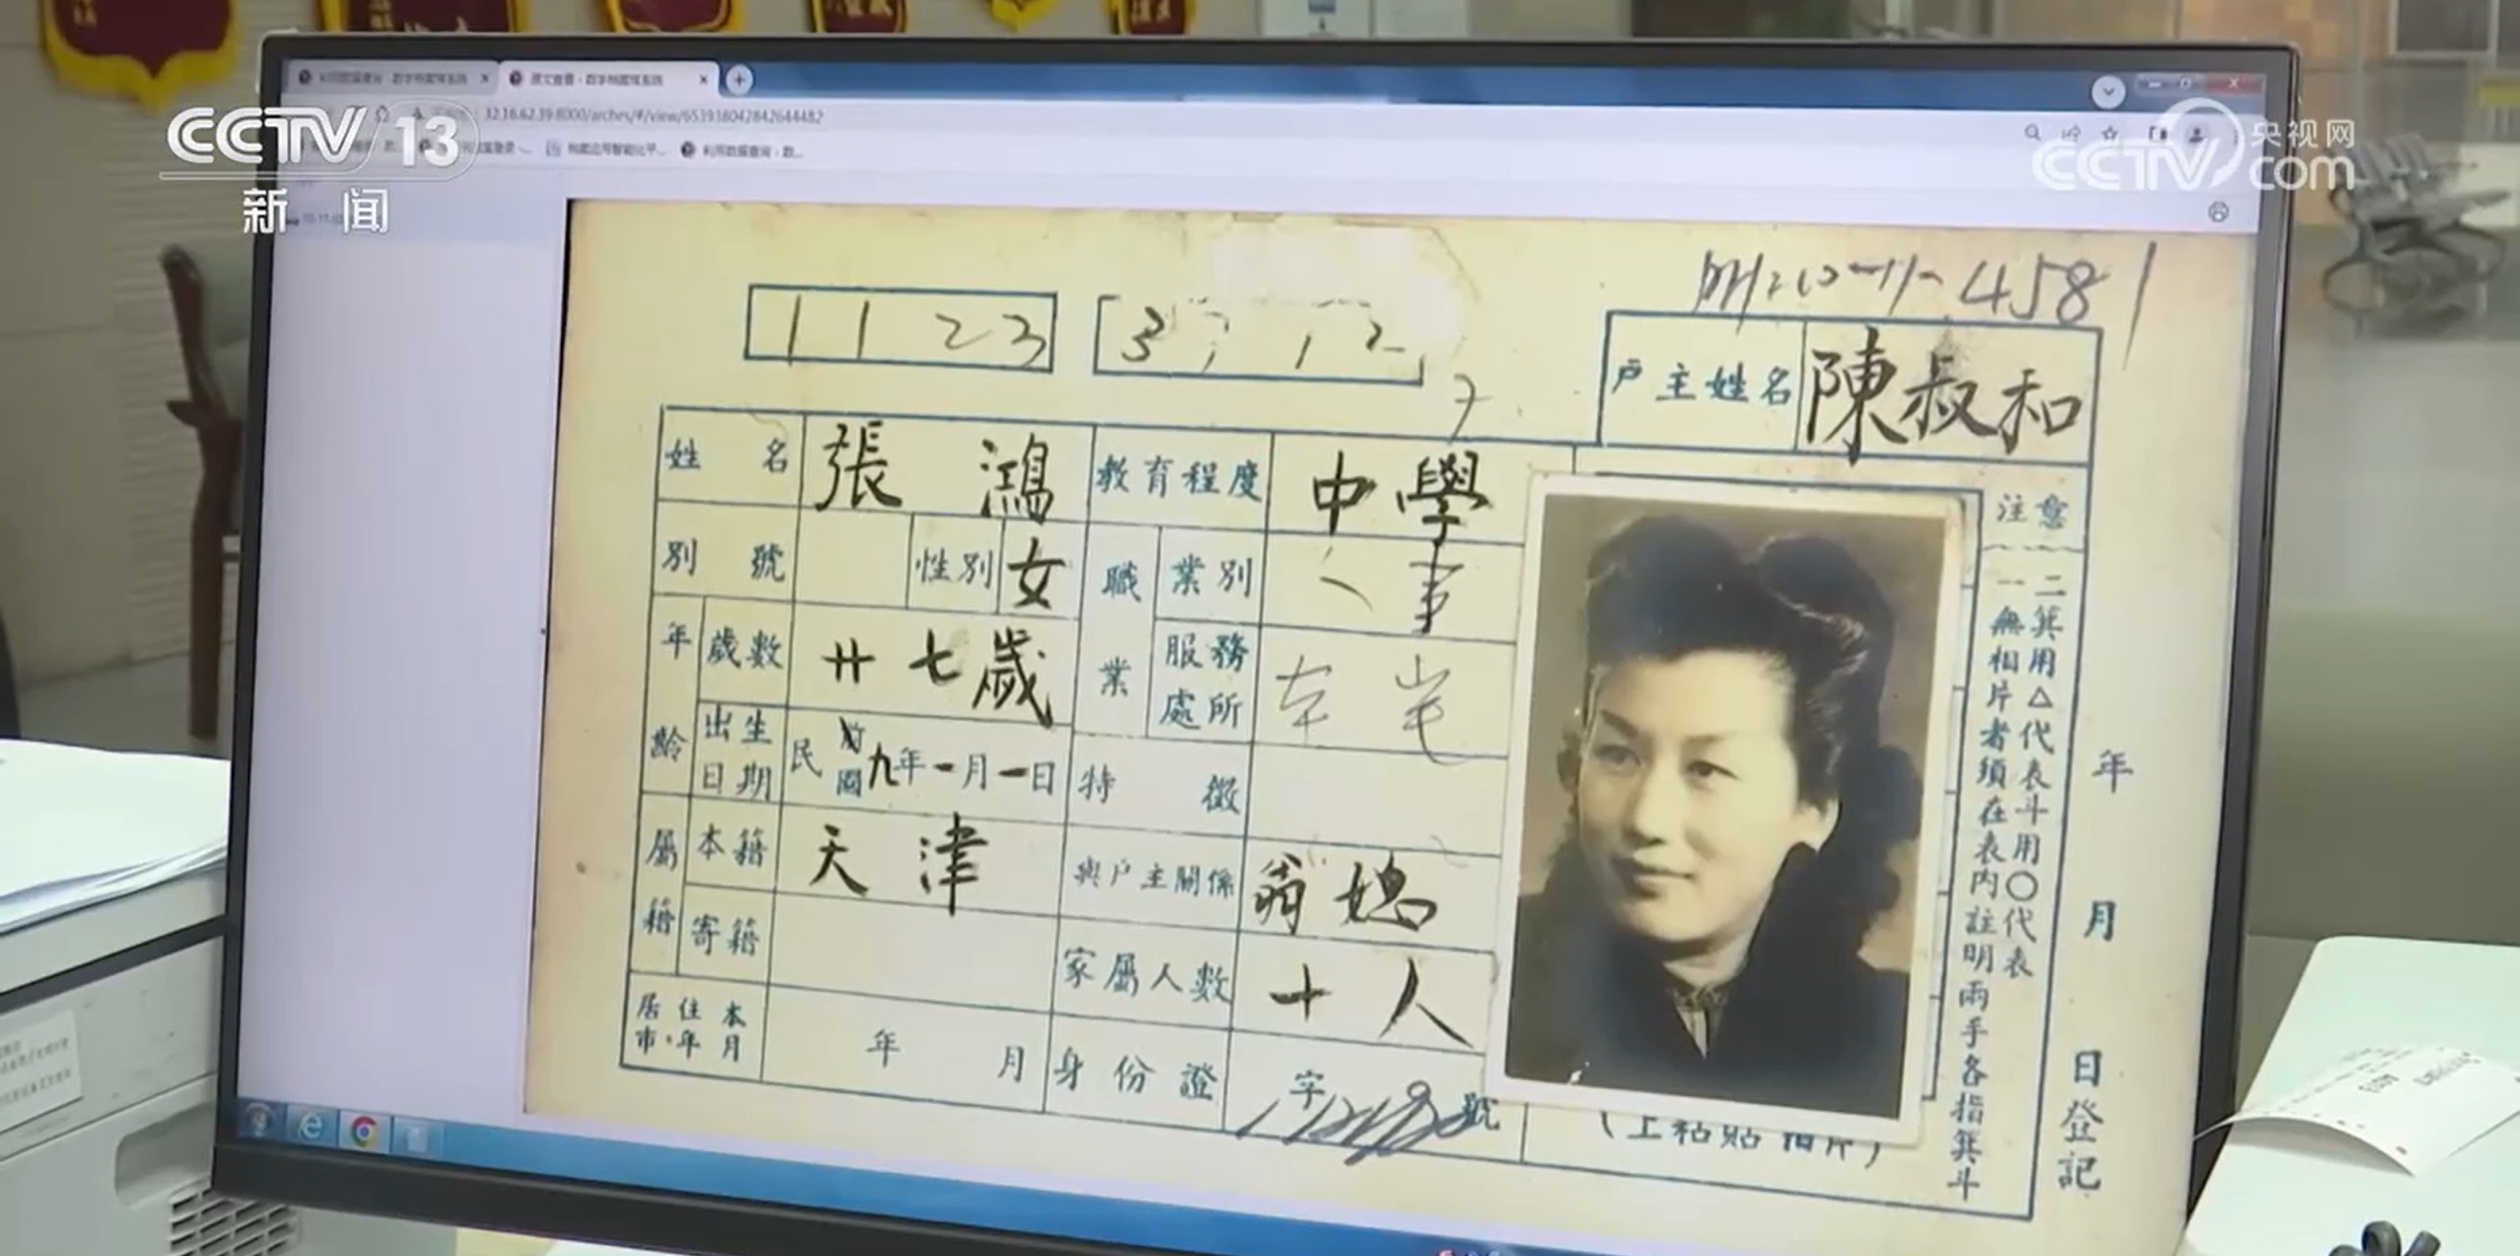 CCTV 13
新闻
央视网
CCTV com
32.16.62.39:8000/arches/#/view/653938042842644482
1123
4581
户主姓名 陳叔和
姓名 張鴻 教育程度 中學
別號 性別 女 職業 業別
年齡 歲數 廿七歲 服務處所
出生日期 民國九年一月一日 特徵
屬籍 本籍 天津 與户主關係 翁媳
寄籍 家屬人數 十人
居住本市年月 年 月 身份證 字 號
注意
一 無相片者須在表內註明兩手各指箕斗
二 箕用△代表斗用〇代表
年 月 日登記